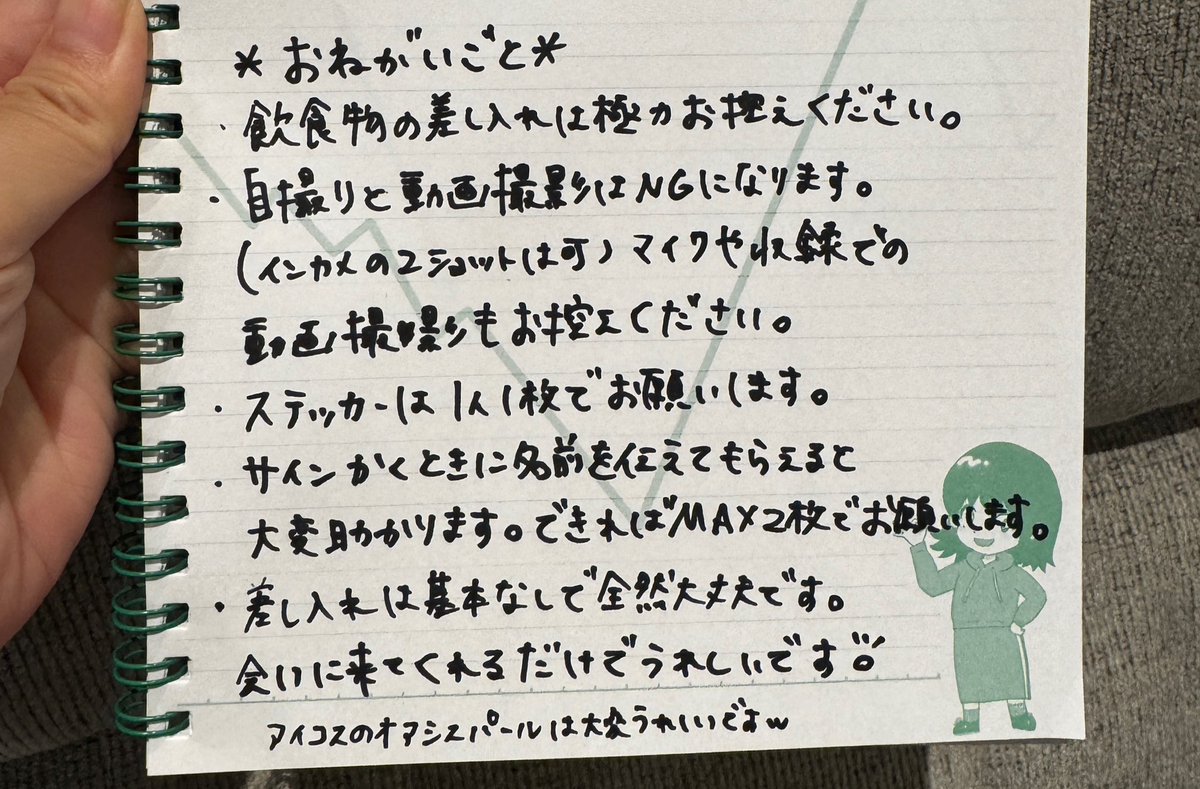 *おねがいごと*
・飲食物の差し入れは極力お控えください。
・自撮りと動画撮影はNGになります。
(インカメの2ショットは可)マイクや収録での
動画撮影もお控えください。
・ステッカーは1人1枚でお願いします。
・サインかくときに名前を伝えてもらえると
大変助かります。できればMAX2枚でお願いします。
・差し入れは基本なしで全然大丈夫です。
会いに来てくれるだけでうれしいです
アイコスのオアシスパールは大変うれしいですw